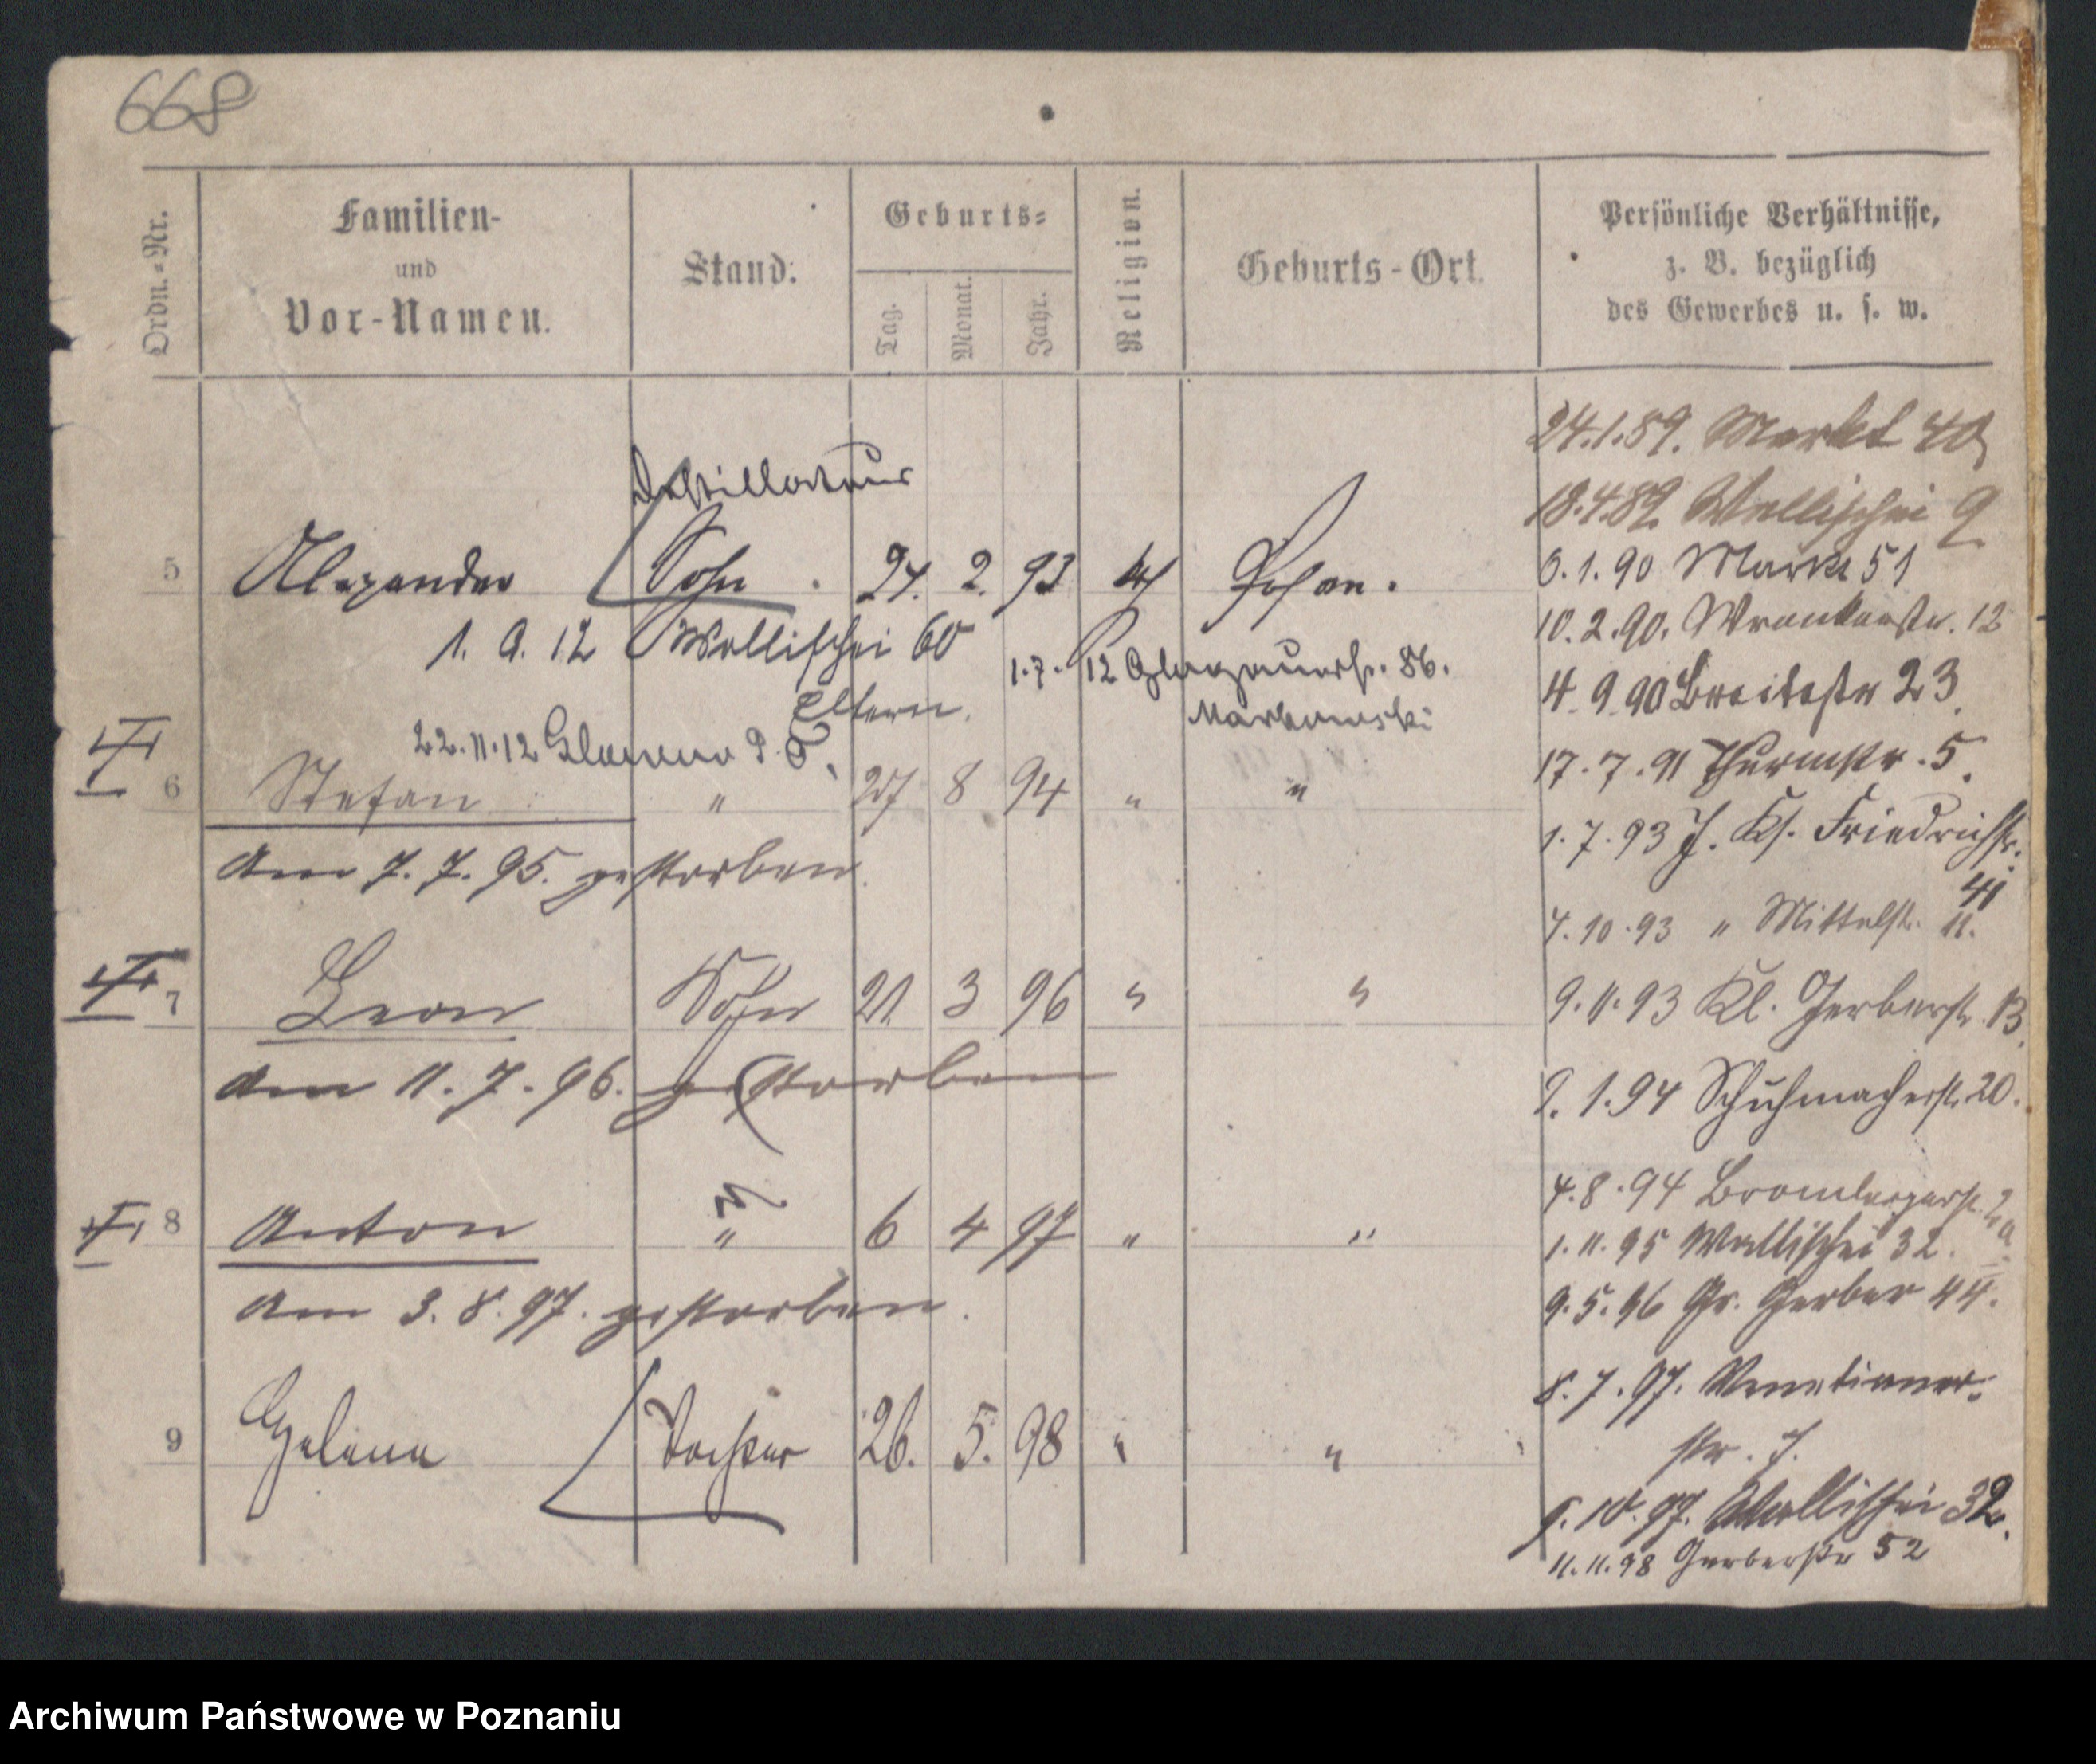 668
Ordn.-Nr.
Familien-
und
Vor-Namen.
Stand.
Geburts-
Tag.
Monat.
Jahr.
Religion.
Geburts-Ort.
Persönliche Verhältnisse,
z. B. bezüglich
des Gewerbes u. s. w.
24.1.89. Markt 40
18.4.89. Wallischei 9
Destillateur
5 Alexander Sohn 24. 2. 93 Posen.
6.1.90 Markt 51
10.2.90. Wronkerstr. 12
1. 9. 12 Wallischei 60
Eltern.
1.7.12 Glogauerstr. 86.
4.9.90 Breitestr 23.
22.11.12
17.7.91 Thurmstr. 5.
6 Stefan " 27 8 94 " "
am 7. 7. 95. gestorben.
1.7.93 J. Ks. Friedrichstr.
41
4.10.93 " Mittelstr. 11.
7 Leon Sohn 21 3 96 " "
9.11.93 Kl. Gerberstr. 13.
am 11. 7. 96. gestorben
2.1.94 Schuhmacherstr. 20.
4.8.94 Brombergerstr. 2a.
8 Anton " 6 4 97 " "
1.11.95 Wallischei 32.
am 3. 8. 97. gestorben.
9.5.96 Gr. Gerber 44.
8.7.97. Venetianer-
str. 7.
9 Helena Tochter 26. 5. 98 " "
9.10.97. Wallischei 32.
11.11.98 Gerberstr 52
Archiwum Państwowe w Poznaniu